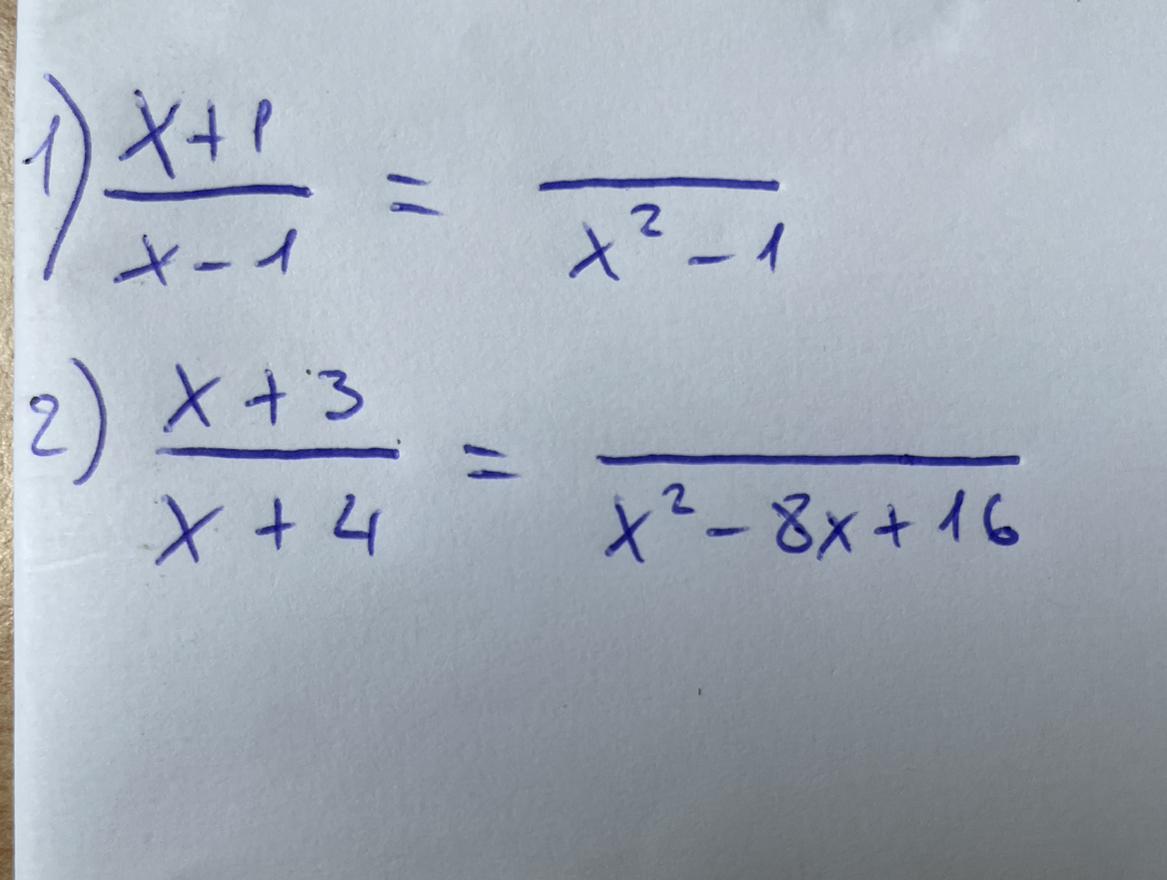 1) (x+1)/(x-1) = /(x²-1)
2) (x+3)/(x+4) = /(x²-8x+16)